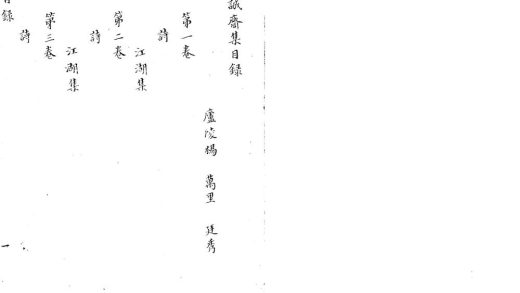 誠齋集目録
廬陵楊 萬里 廷秀
第一卷
詩
江湖集
第二卷
詩
江湖集
第三卷
詩
目録
一